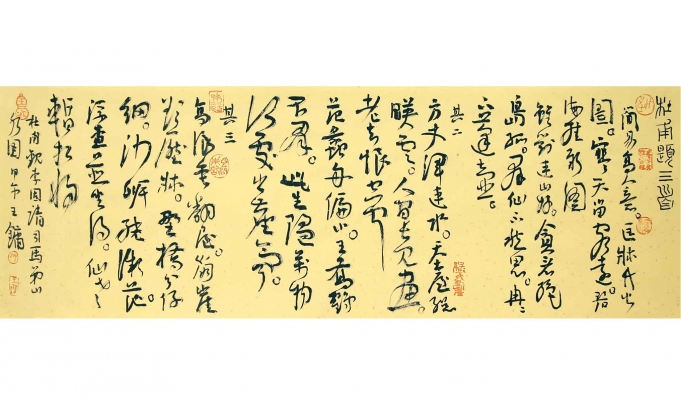 杜甫題三首
簡易高人意。匡牀竹火
爐。寒天留遠客。碧
海挂新圖
雖對連山好。貪看絕
島孤。群仙不愁思。冉冉
下蓬壺。
其二
方丈渾連水。天台總
映雲。人間長見畫。
老去恨空聞
范蠡舟偏小。王喬鶴
不群。此生隨萬物
何處出塵氛。
其三
高浪垂翻屋。崩崖
欲壓牀。野橋分仔
細。沙岸繞微茫。
浮查並坐得。仙老
暫相將
杜甫觀李固請司馬弟山
水圖 甲午 王鏞